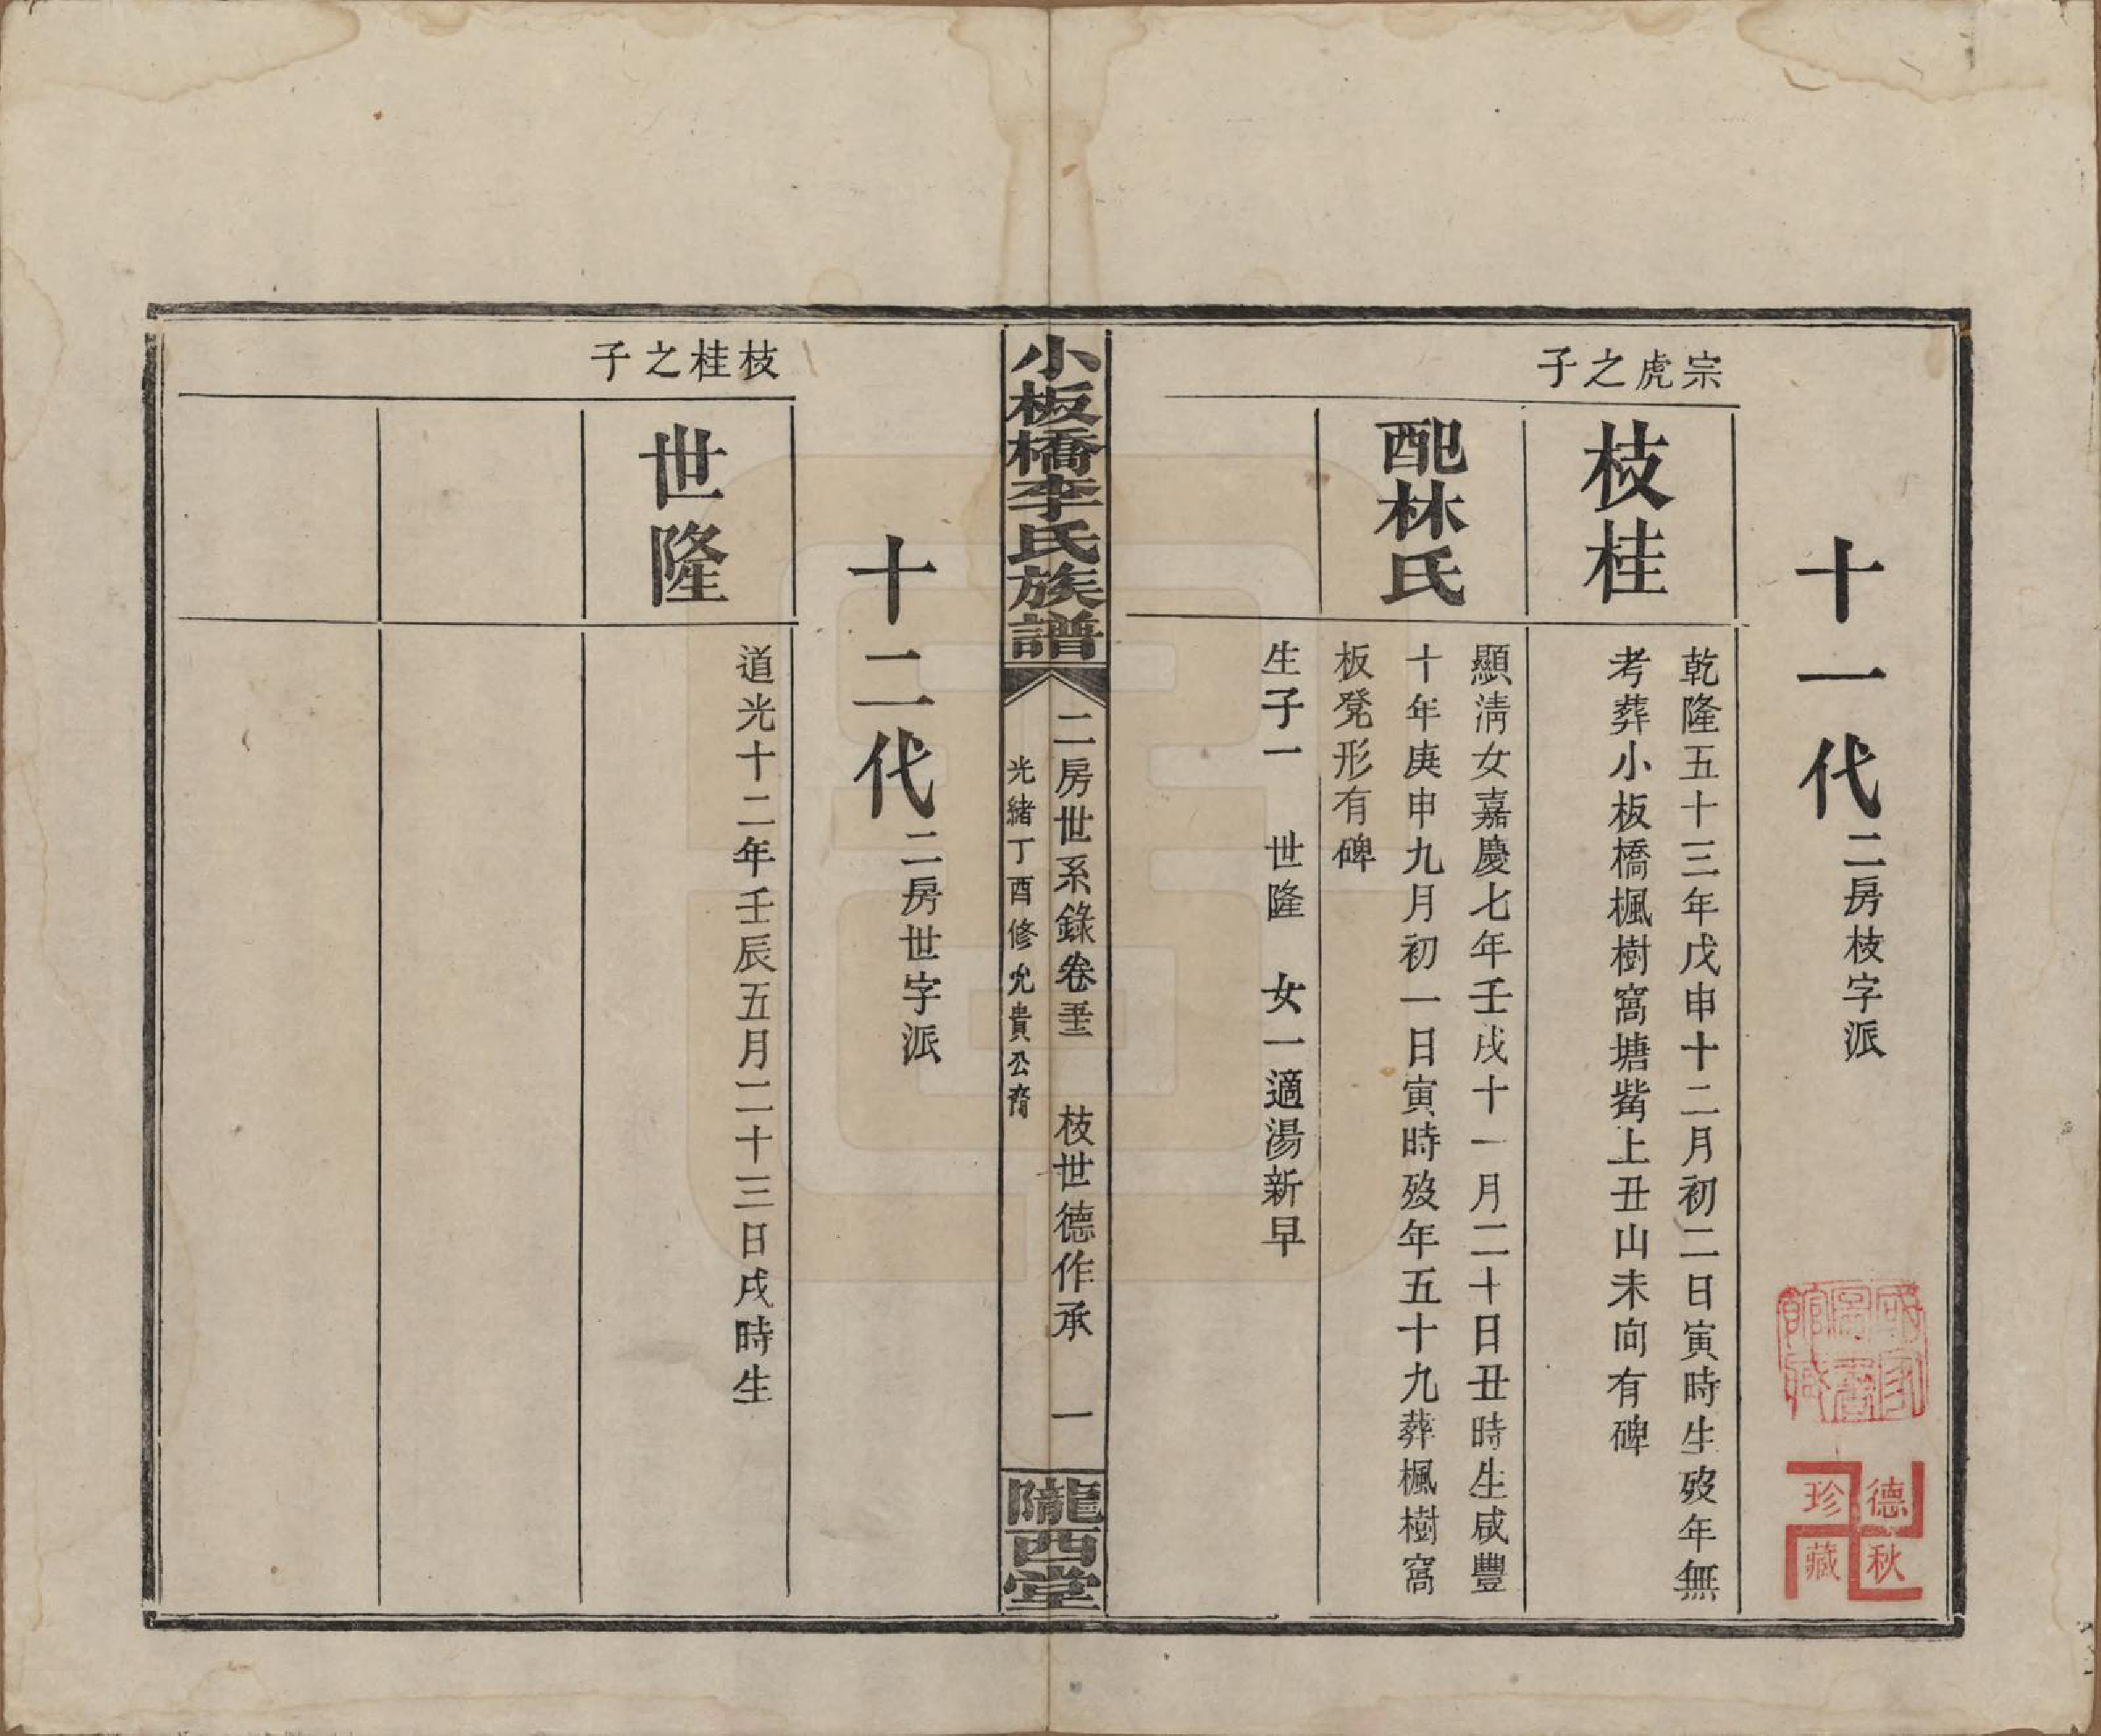 十一代二房枝字派
宗虎之子
枝桂
乾隆五十三年戊申十二月初二日寅時生歿年無
考葬小板橋楓樹窩塘觜上丑山未向有碑
配林氏
顯清女嘉慶七年壬戌十一月二十日丑時生咸豐
十年庚申九月初一日寅時歿年五十九葬楓樹窩
板凳形有碑
生子一 世隆 女一適湯新早
小板橋李氏族譜
二房世系錄卷 枝世德作承 一
光緒丁酉修允貴公房
隴西堂
十二代二房世字派
枝桂之子
世隆
道光十二年壬辰五月二十三日戌時生
國家圖書館藏
德秋珍藏